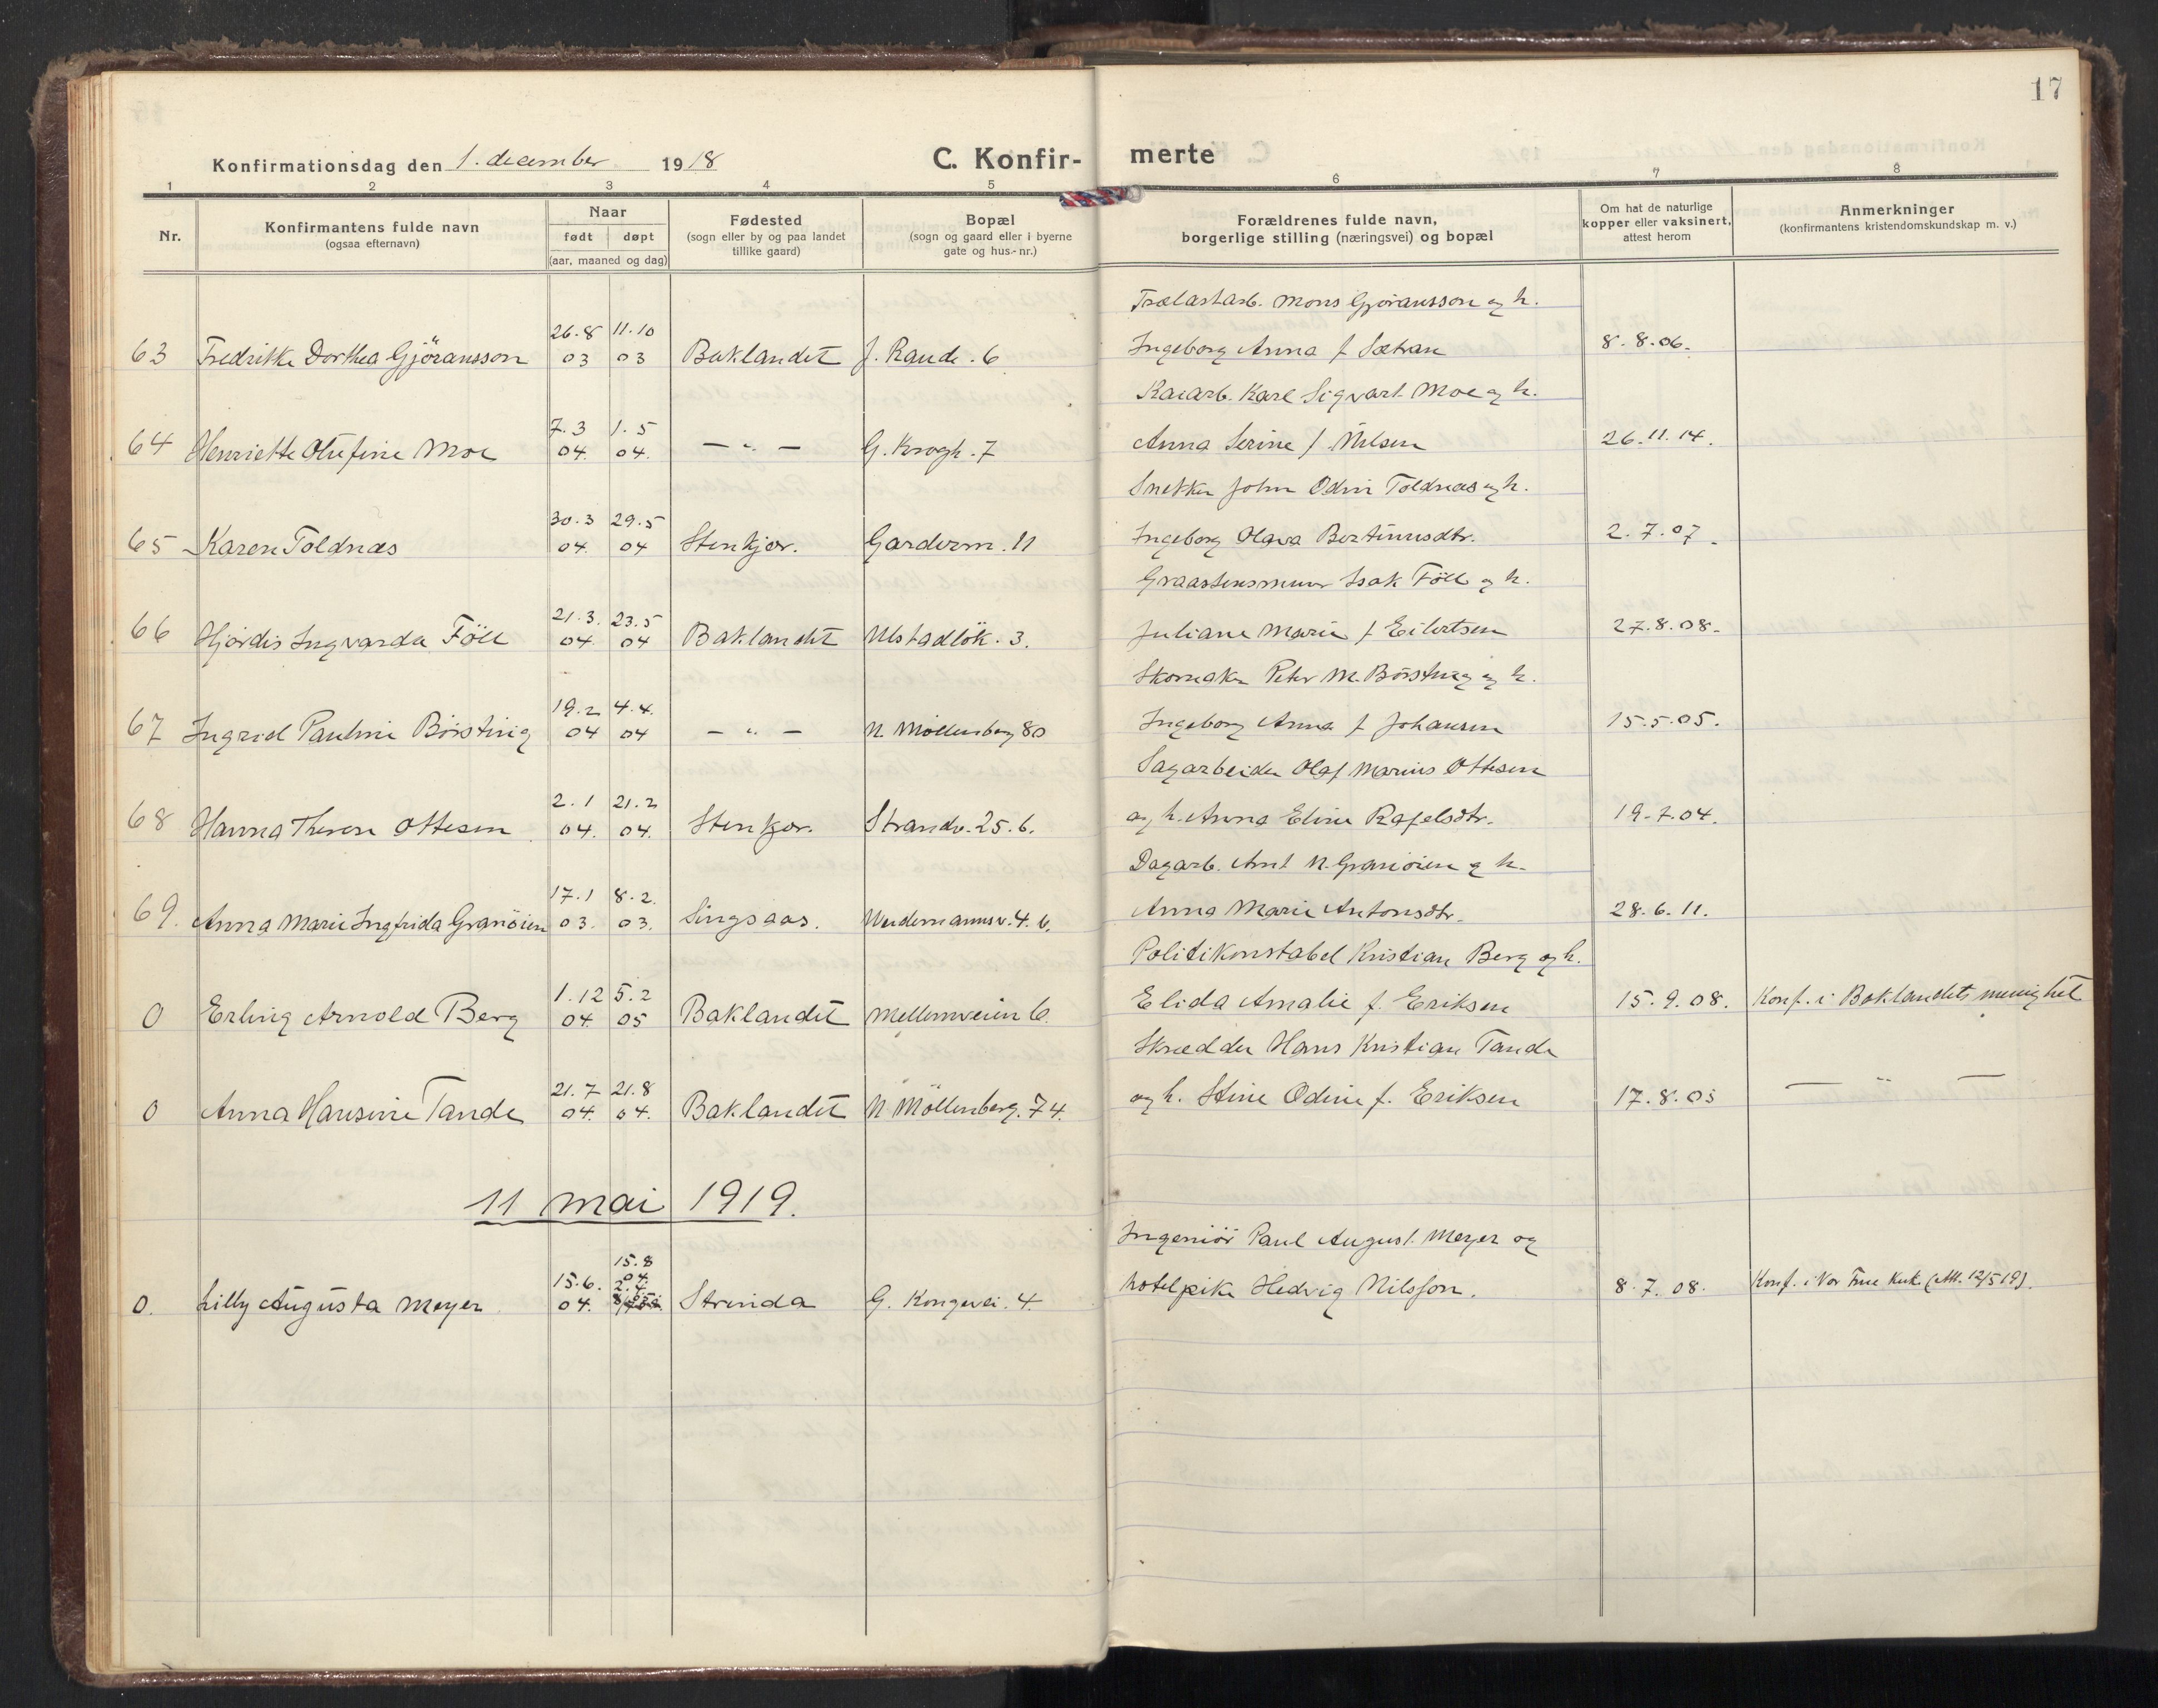 17
Konfirmationsdag den 1. december 1918
C. Konfir- merte
1 2 3 4 5 6 7 8
Nr.
Konfirmantens fulde navn
(ogsaa efternavn)
Naar
født døpt
(aar, maaned og dag)
Fødested
(sogn eller by og paa landet
tillike gaard)
Bopæl
(sogn og gaard eller i byerne
gate og hus-nr.)
Forældrenes fulde navn,
borgerlige stilling (næringsvei) og bopæl
Om hat de naturlige
kopper eller vaksinert,
attest herom
Anmerkninger
(konfirmantens kristendomskundskap m. v.)
Trælastarb. Mons Gjöransson og h.
26.8 11.10
63 Fredrikke Dorthea Gjöransson 03 03 Baklandet J. Rande. 6 Ingeborg Anna f Sætran 8.8.06.
Kaiarb. Karl Sigvart Moe og h.
7.3 1.5
64 Henriette Olufine Moe 04. 04. — " — G. Krogh. 7 Anna Serine f. Nilsen 26.11.14.
Snekker John Odin Toldnæs og h.
30.3 29.5
65 Karen Toldnæs 04. 04 Stenkjær. Garderm. 11 Ingeborg Olava Bertinusdtr. 2.7.07.
Graastensmurer Isak Föll og h.
21.3. 23.5
66 Hjördis Ingvarda Föll 04. 04 Baklandet Ulstadlök. 3. Juliane Marie f Eilertsen 27.8.08.
Skomaker Peter M. Börsting og h.
19.2 4.4.
67 Ingrid Pauline Börsting 04 04 — " — N. Möllenberg 80 Ingeborg Anna f Johansen 15.5.05.
Sagarbeider Olaf Marius Ottesen
2.1 21.2
68 Hanna Therese Ottesen 04. 04. Stenkjær. Strandv. 25.b. og h. Anna Eline Rafelsdtr. 19.7.04.
Dagarb. Arnt N. Granöien og h.
17.1 8.2.
69. Anna Marie Ingfrida Granöien 03. 03. Singsaas. Weidemannsv. 4.b. Anna Marie Antonsdtr. 28.6.11.
Politikonstabel Kristian Berg og h.
1.12 5.2
0 Erling Arnold Berg 04 05 Baklandet Mellemveien 6. Elida Amalie f. Eriksen 15.9.08. Konf. i Baklandets menighet
Skrædder Hans Kristian Tande
21.7 21.8
0 Anna Hansine Tande 04. 04. Baklandet N. Möllenberg. 74. og h. Stine Odine f. Eriksen 17.8.05 — " —
11 mai 1919.
Ingeniör Paul August Meyer og
15.8
15.6. 04.
0. Lilly Augusta Meyer 04. Strinda G. Kongevei. 4. hotelpike Hedvig Nilsson. 8.7.08. Konf. i Vor Frue Kirke (Att. 12/5 19).